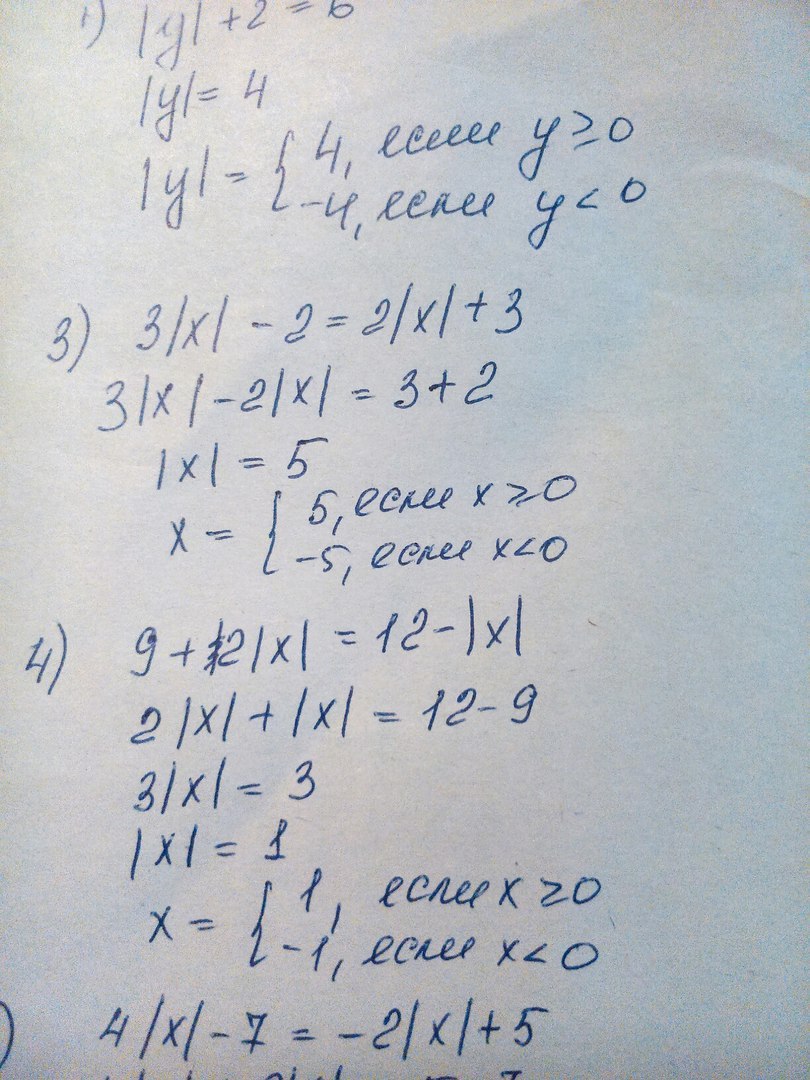 1) |y| + 2 = 6
|y| = 4
|y| = { 4, если y ≥ 0
-4, если y < 0
3) 3|x| - 2 = 2|x| + 3
3|x| - 2|x| = 3 + 2
|x| = 5
x = { 5, если x ≥ 0
-5, если x < 0
4) 9 + 2|x| = 12 - |x|
2|x| + |x| = 12 - 9
3|x| = 3
|x| = 1
x = { 1, если x ≥ 0
-1, если x < 0
) 4|x| - 7 = -2|x| + 5